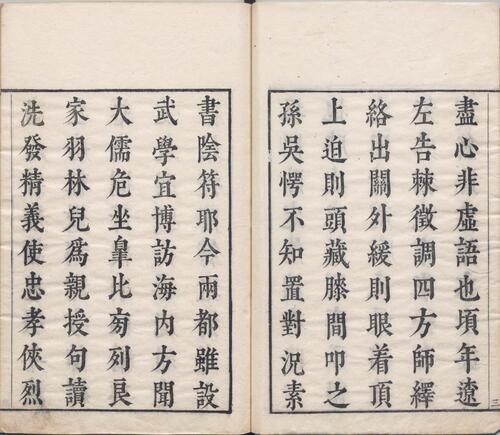 盡心非虛語也頃年遼
左告棘徵調四方師繹
絡出關外緩則眼着頂
上迫則頭藏膝間叩之
孫吳愕不知置對況素
書陰符耶今兩都雖設
武學宜博訪海內方聞
大儒危坐皐比旁列良
家羽林兒爲親授句讀
洗發精義使忠孝俠烈
三